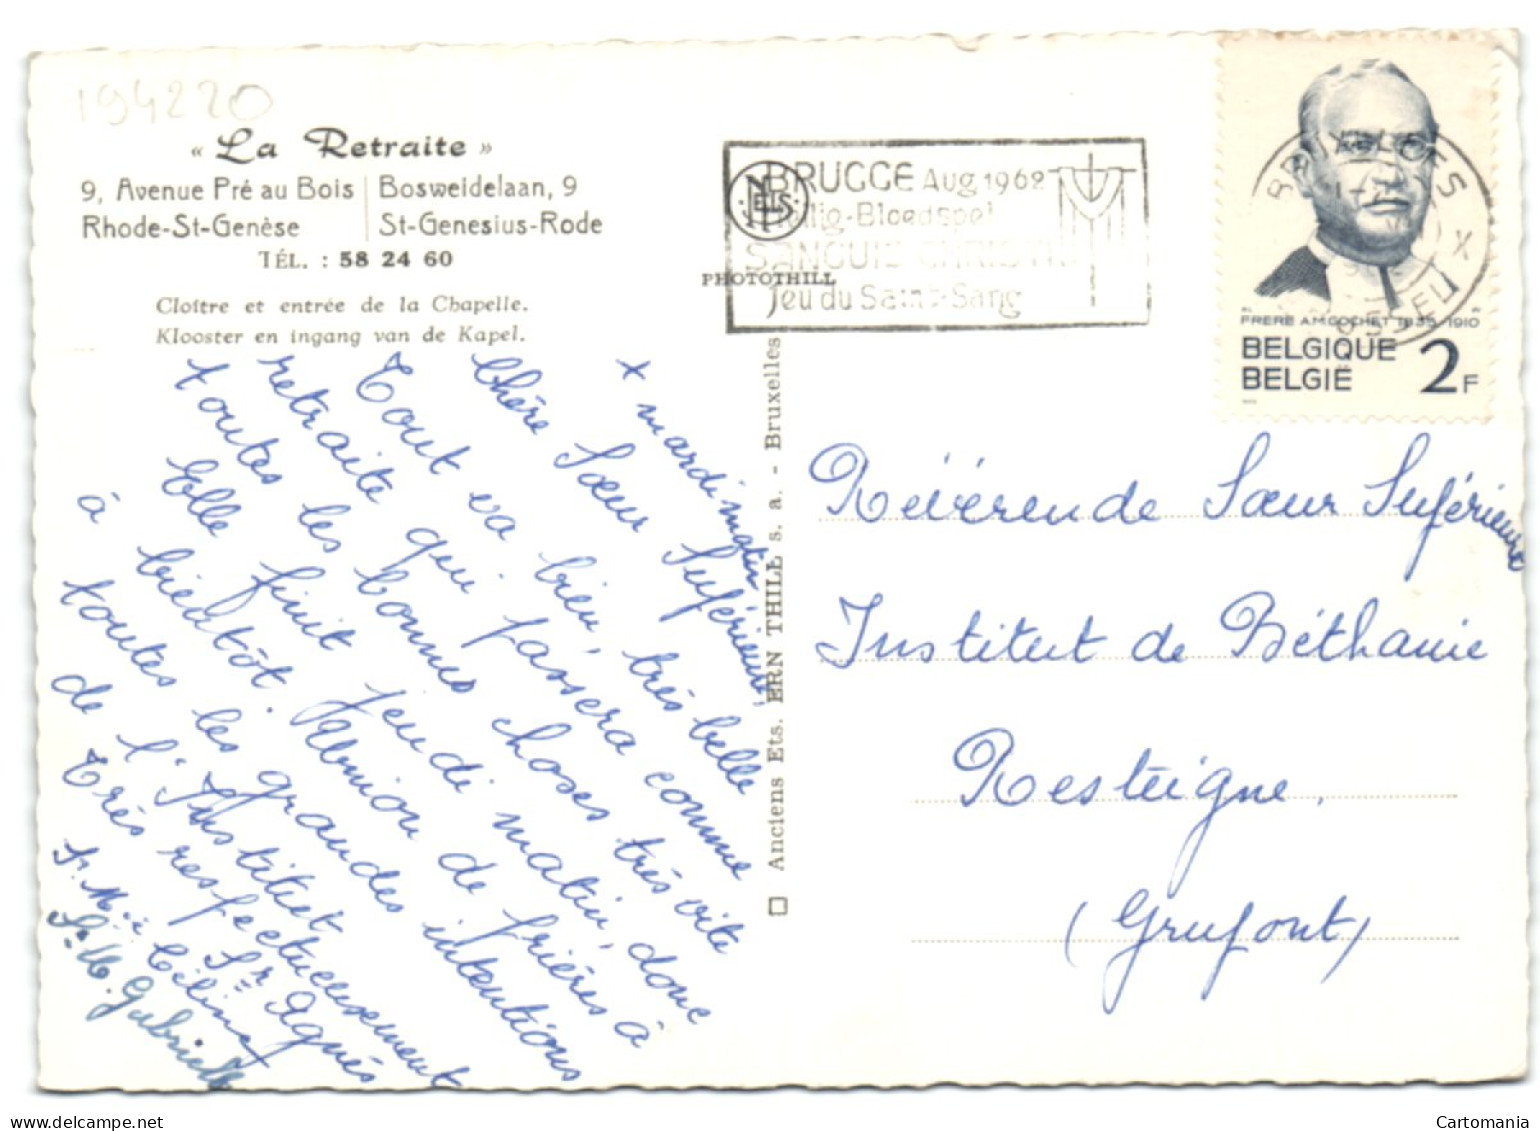 194220
« La Retraite »
9, Avenue Pré au Bois | Bosweidelaan, 9
Rhode-St-Genèse | St-Genesius-Rode
TÉL. : 58 24 60
Cloître et entrée de la Chapelle.
Klooster en ingang van de Kapel.
+ mardi matin
Chère Sœur Supérieure,
Tout va bien, très belle
retraite qui passera comme
toutes les bonnes choses très vite
Elle finit jeudi matin, donc
à bientôt. Union de prières à
toutes les grandes intentions
de l'Institut
Très respectueusement
Sr Agnès
Sr M. Céline
Sr M. Gabrielle
NELS
PHOTOTHILL
Anciens Ets. ERN THILL s. a. - Bruxelles
BRUGGE Aug 1962
Heilig-Bloedspel
SANGUIS CHRISTI
Jeu du Saint-Sang
BRUXELLES X
BRUSSEL
FRERE AM. GOCHET 1835-1910
BELGIQUE
BELGIË 2F
Révérende Sœur Supérieure
Institut de Béthanie
Resteigne.
(Grupont)
delcampe.net
Cartomania